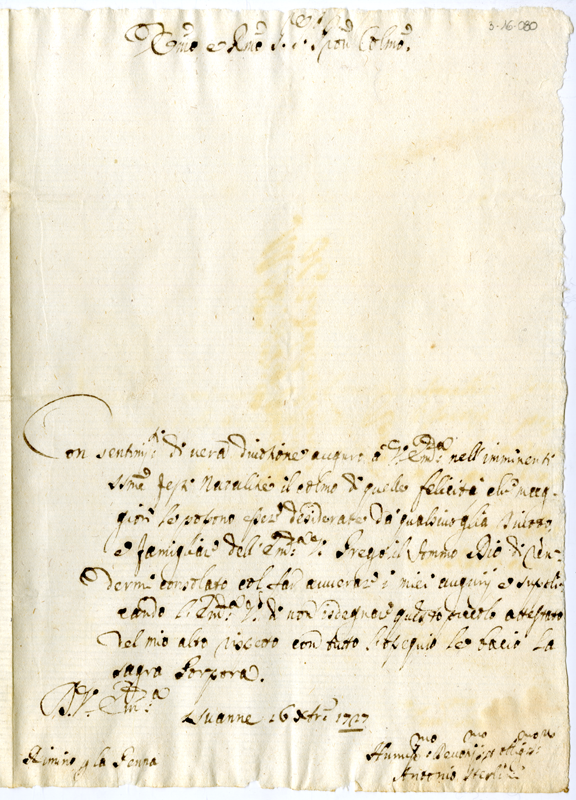 3-16-080
Em̃o e Rm̃o S.r S.r Pron Colmo.
Con sentimti di vera divotione auguro a V. Em.a nell'imminenti
SSme feste Natalitie il colmo di quelle felicità che mag-
giori le potrono esser desiderate da qualsivoglia
e famiglia dell' Em.a V. Prego il sommo Dio di ren-
dermi consolato col far avverare i miei augurij e suppli-
cando l'Em.a V. di non isdegnare questo piccolo attestato
del mio alto con tutto l'ossequio le bacio la
sagra Porpora.
D. V. Em.a
16 Xbre 1727
Rimino p la Penna
Humilmo Devotmo et Obligmo
Antonio